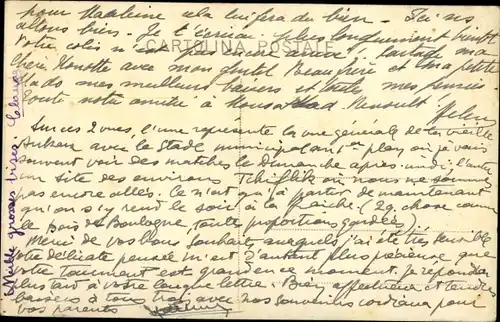 pour Madeleine cela lui fera du bien. Ici ns
allons bien. Je t'écrirai plus longuement bientôt
Votre colis n'est pas encore arrivé. Partage ma
CARTOLINA POSTALE
chère Nonotte avec mon gentil Beau frère et ma petite
Mado mes meilleurs baisers et toutes mes pensées
toute notre amitié à Renault.
Sur ces 2 vues, l'une représente la vue générale de la vieille
avec le Stade municipal au 1er plan où je vais
souvent voir des matches le dimanche après-midi. l'autre
un site des environs Tchiflik où nous ne sommes
pas encore allés. Ce n'est qu'à partir de maintenant
qu'on s'y rend le soir à la fraîche (2q. chose comme
le Bois de Boulogne, toute proportions gardées)
Merci de vos bons souhaits auxquels j'ai été très sensible
Votre délicate pensée m'est d'autant plus précieuse que
votre tourment est grand en ce moment. Je répondrai
plus tard à votre longue lettre. Bien affectueux et tendres
baisers à tous trois avec nos souvenirs cordiaux pour
vos parents
Mille grosses bises. Claude